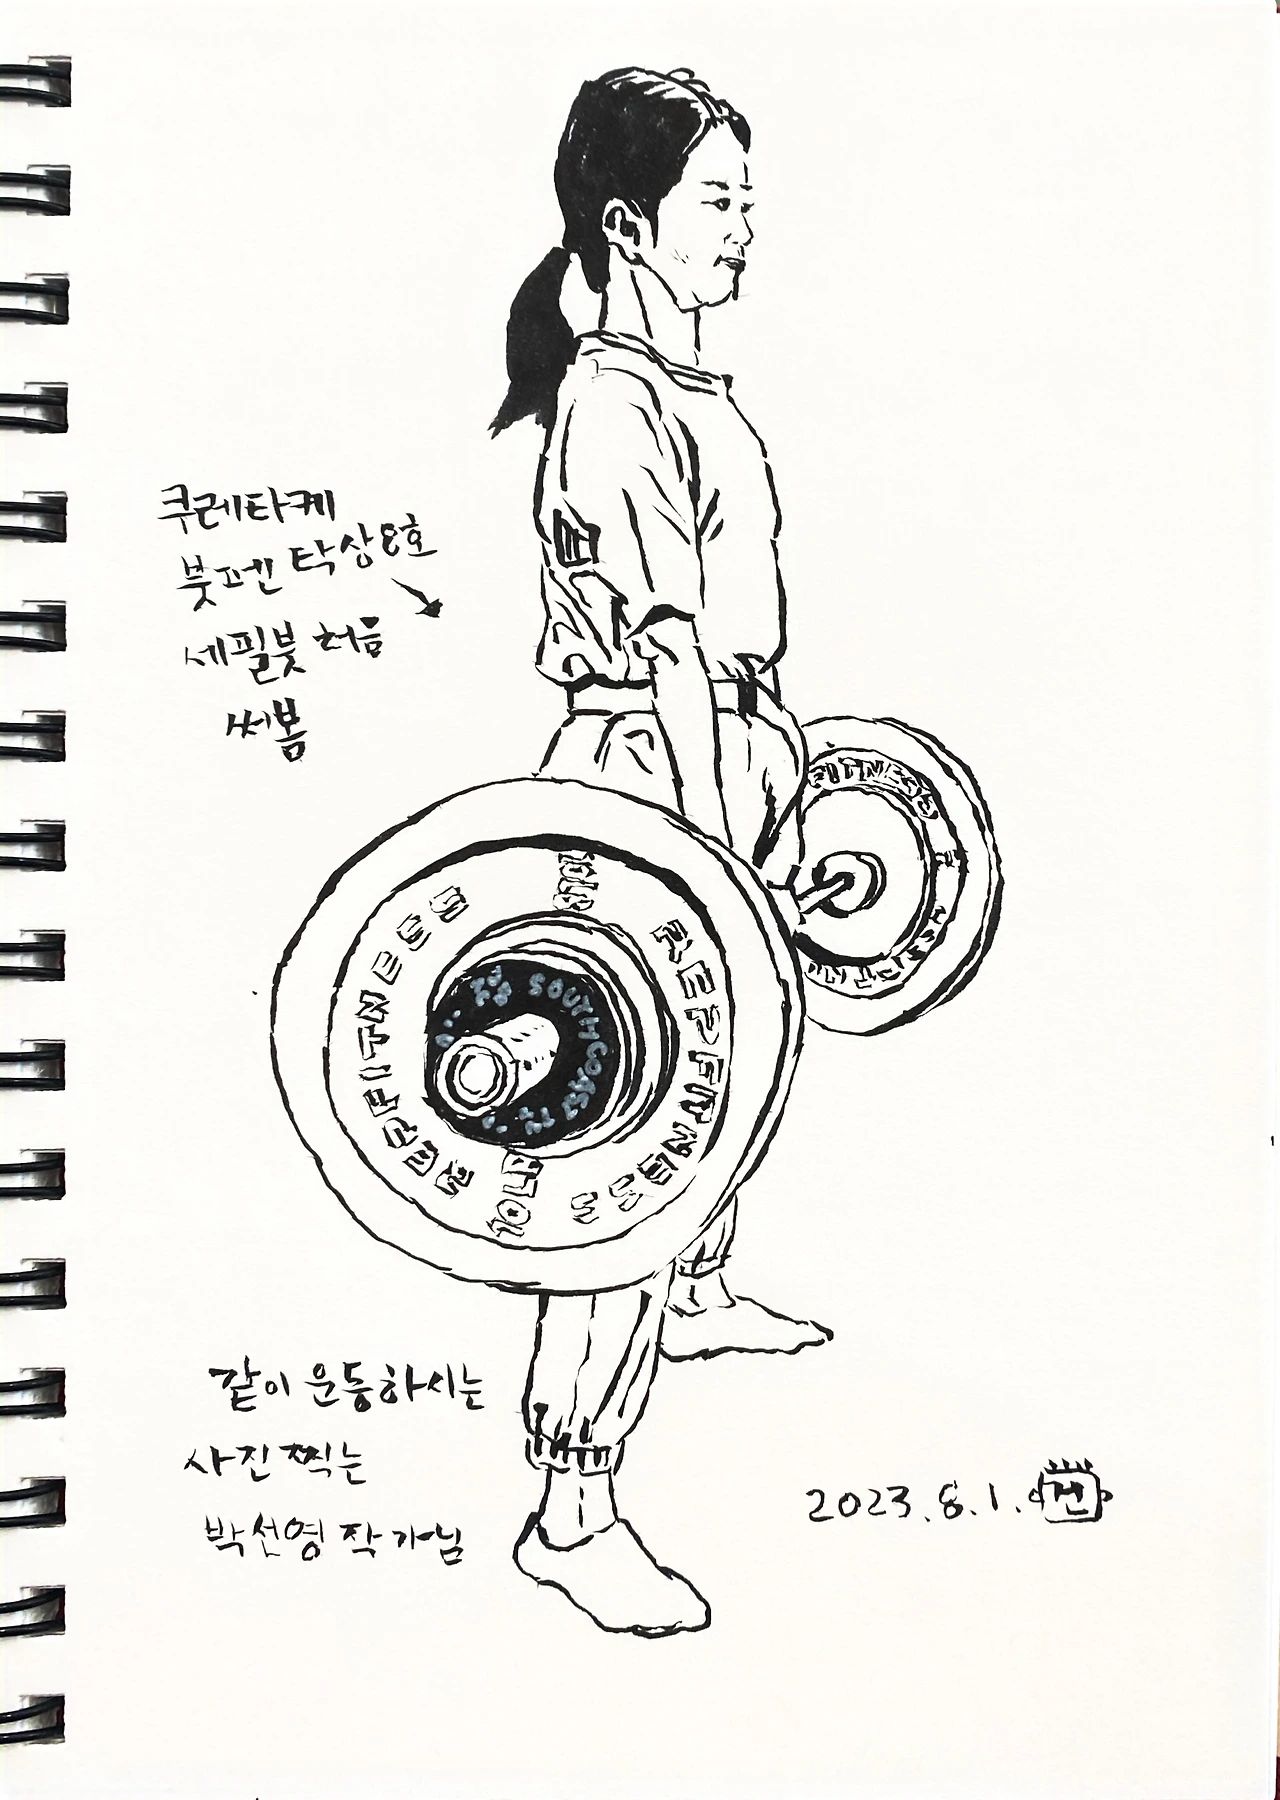 쿠레타케
붓펜 탁상8호
세필붓 처음
써봄
FITNESS
REPFITNESS
REPFITNESS
SOUTH COAST
같이 운동하시는
사진 찍는
박선영 작가님
2023.8.1. 건